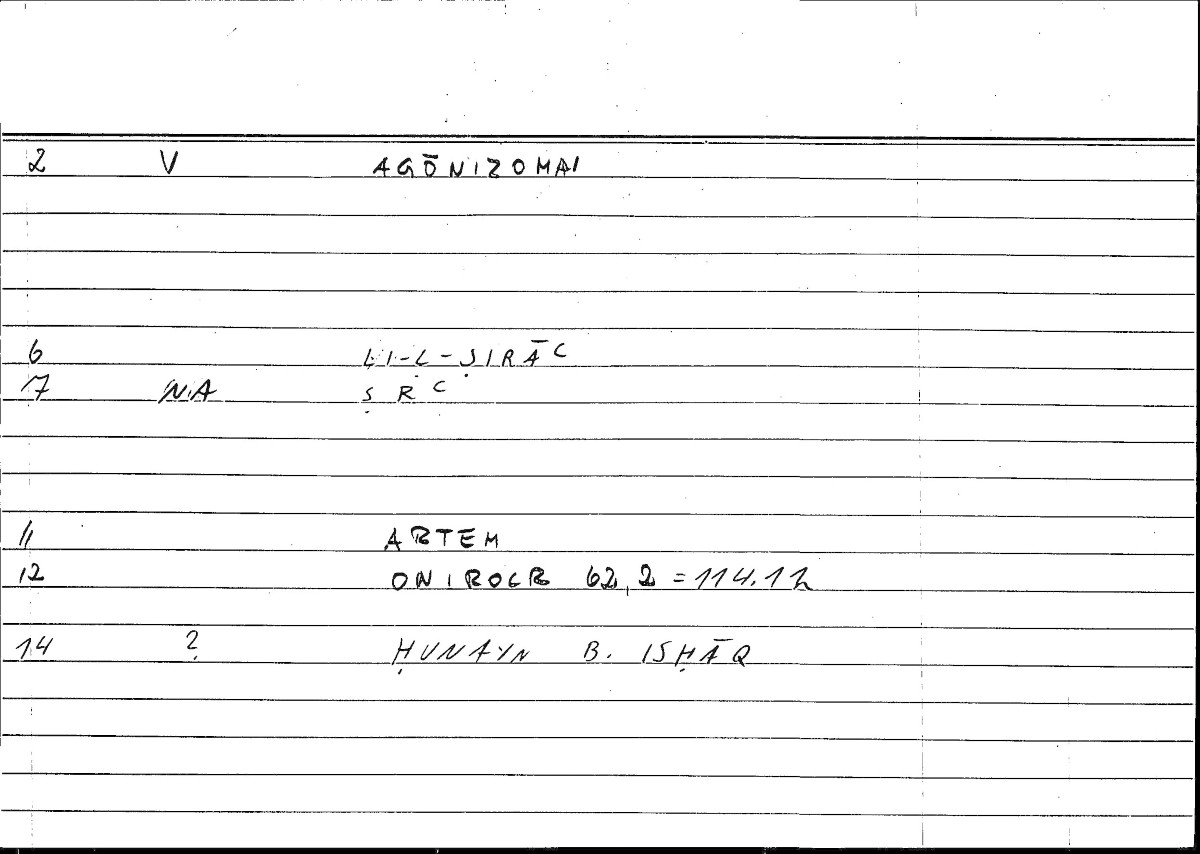 2 V AGŌNIZOMAI
6 LI-L-ṢIRĀC
17 N.A ṢRC
11 ARTEM
12 ONIROCR 62,2 = 114.12
14 ? ḤUNAYN B. ISḤĀQ